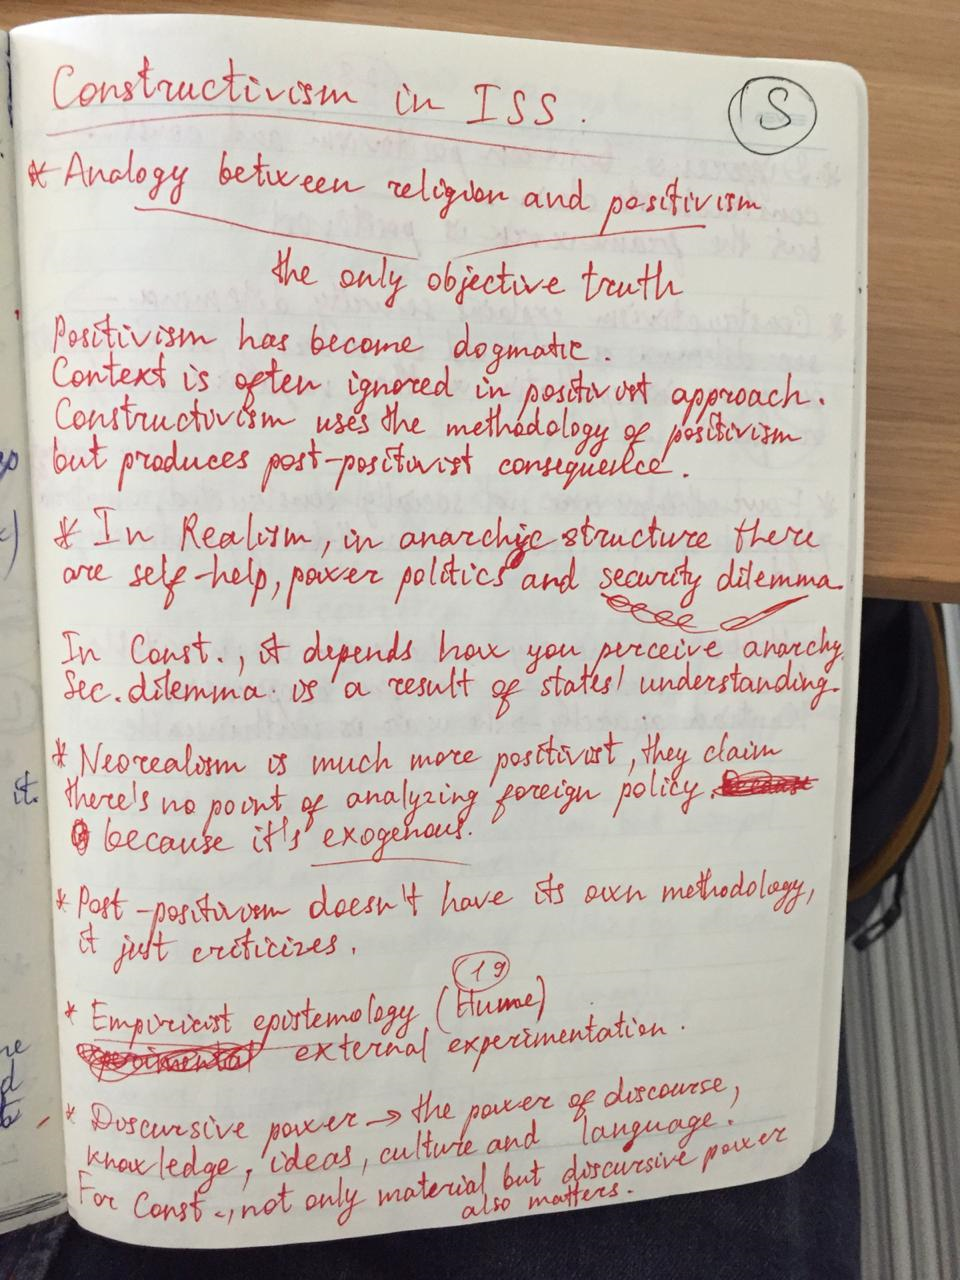 Constructivism in ISS.
S
* Analogy between religion and positivism
the only objective truth
Positivism has become dogmatic.
Context is often ignored in positivist approach.
Constructivism uses the methodology of positivism
but produces post-positivist consequence.
* In Realism, in anarchic structure there
are self-help, power politics and security dilemma.
In Const., it depends how you perceive anarchy.
Sec. dilemma is a result of states' understanding.
* Neorealism is much more positivist, they claim
there's no point of analyzing foreign policy. because
because it's exogenous.
* Post-positivism doesn't have its own methodology,
it just criticizes.
19
* Empiricist epistemology (Hume)
experimental external experimentation.
* Discursive power → the power of discourse,
knowledge, ideas, culture and language.
For Const., not only material but discursive power
also matters.
it.